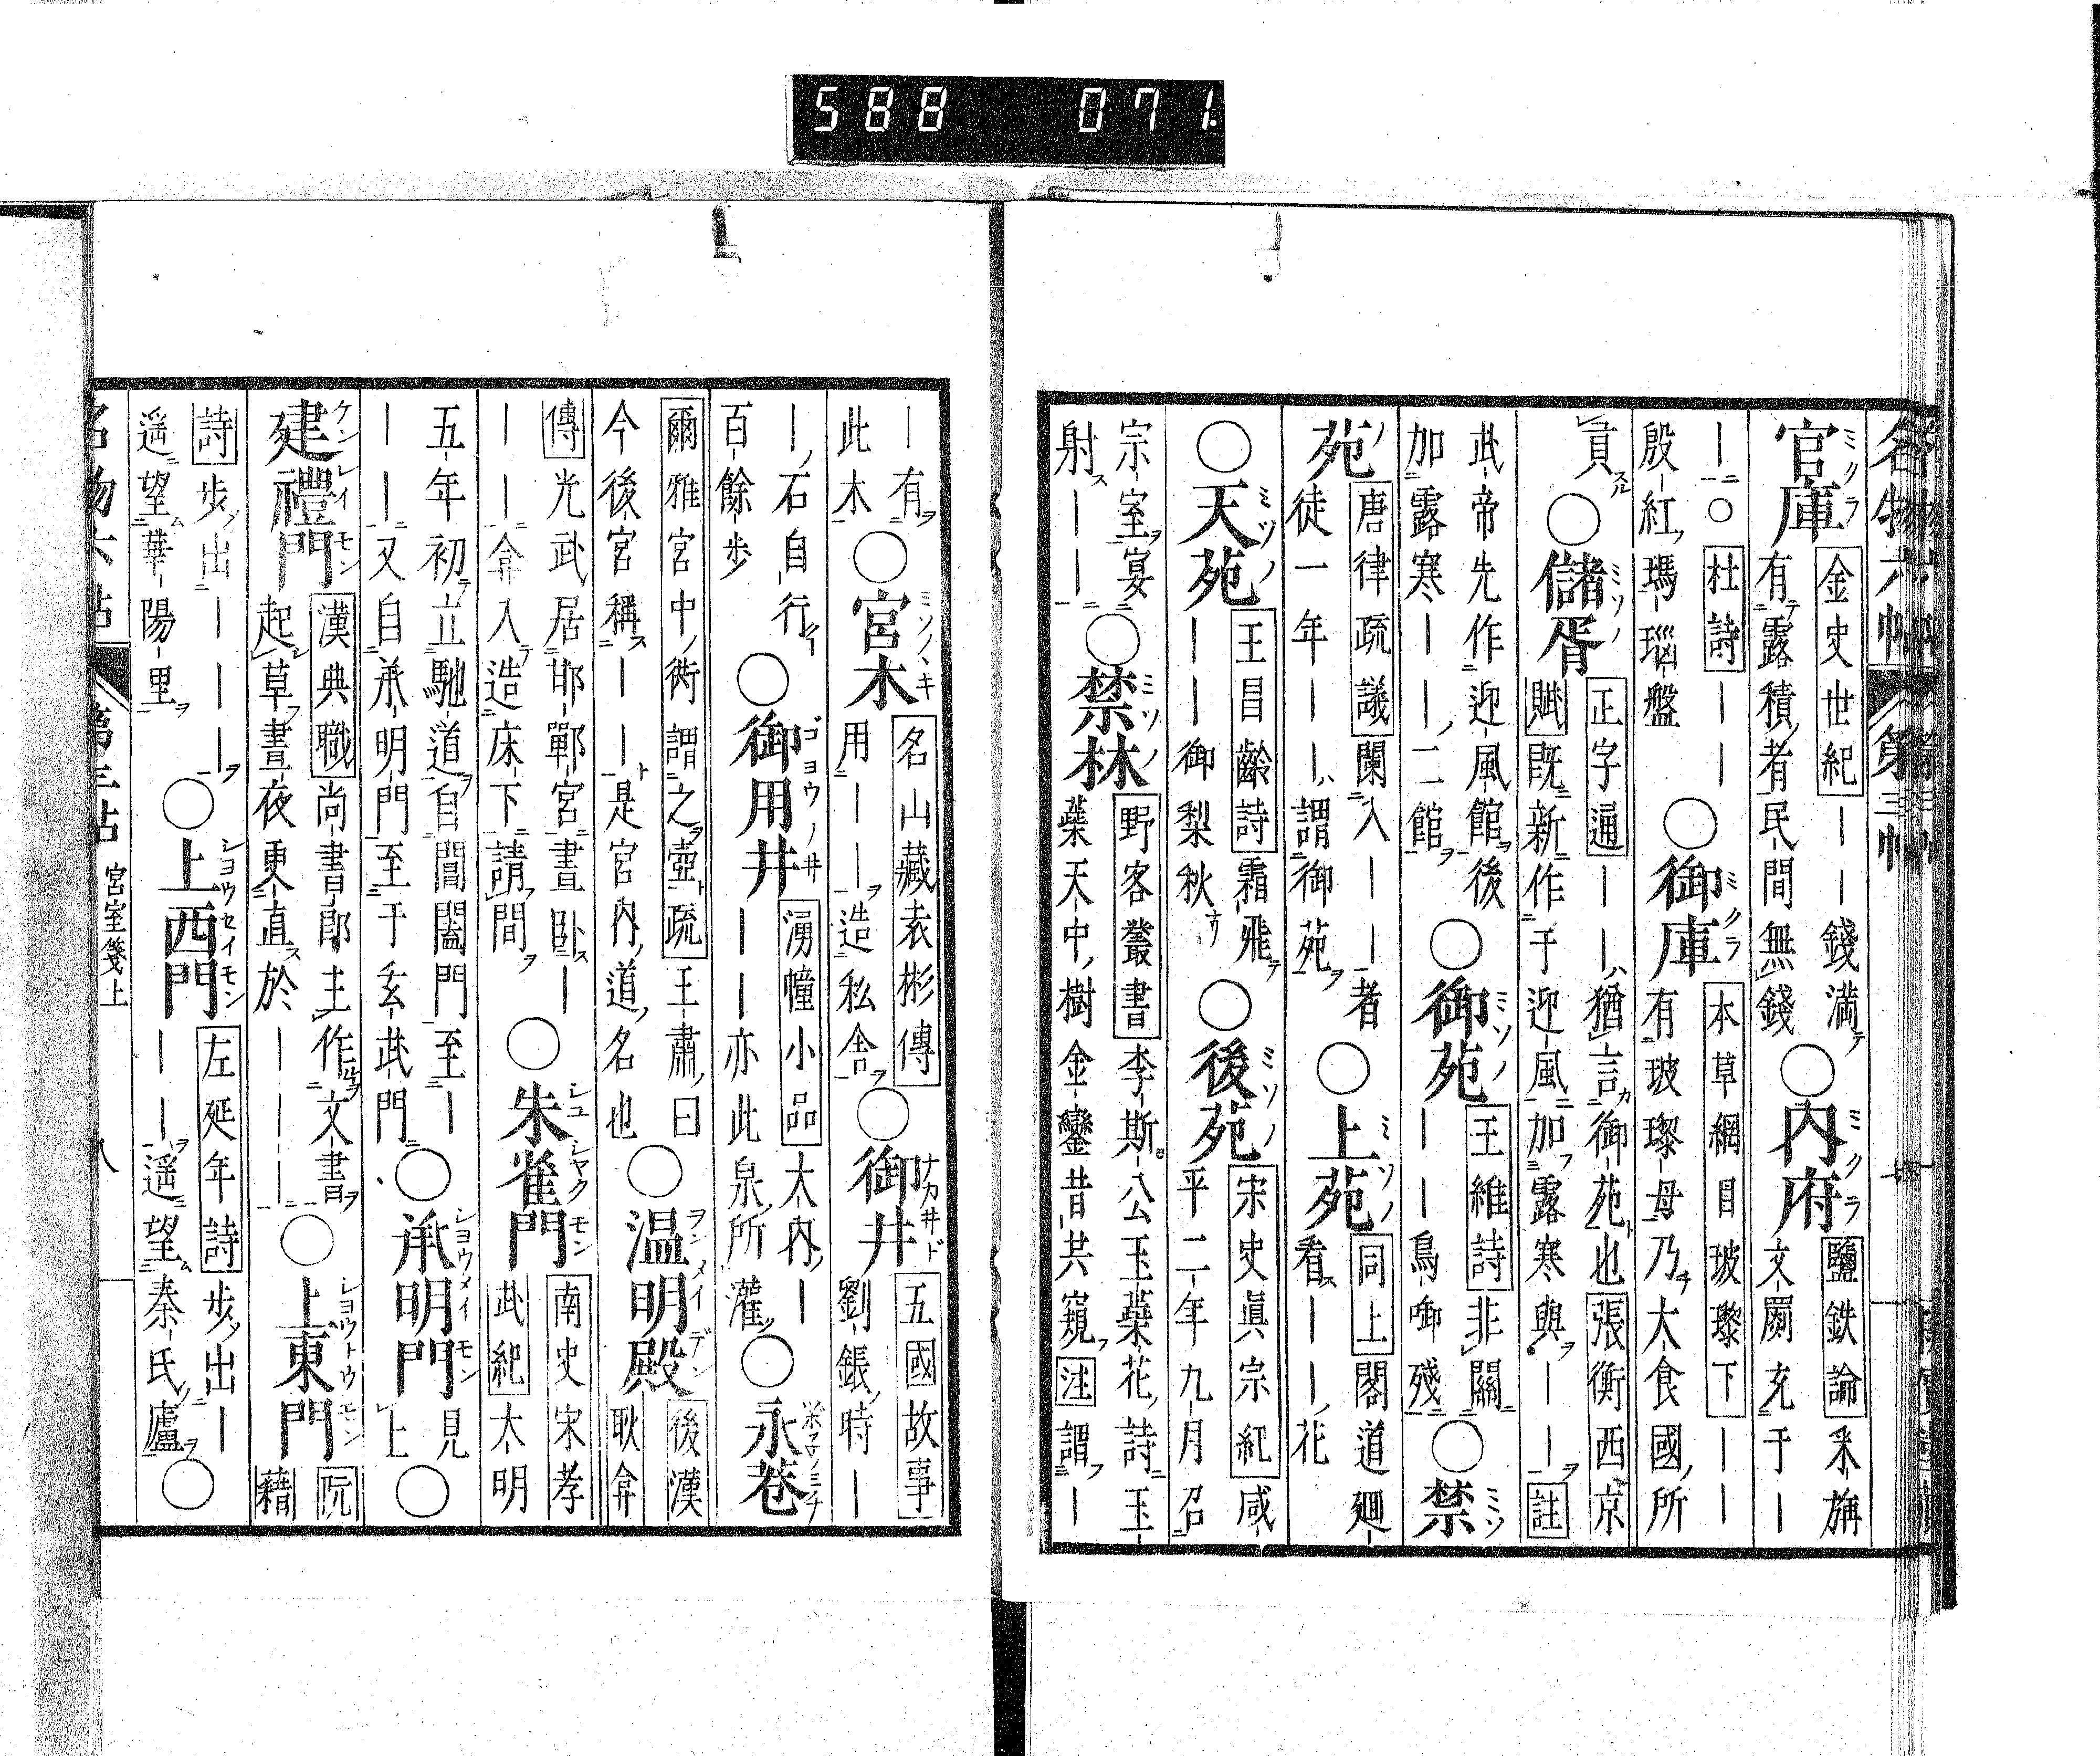 名物六帖 第三帖
官庫 ミクラ
金史世紀——錢満テ
有テ露積者民間無錢
○內府 ミクラ
鹽鉄論釆旃
文罽充于—
—○杜詩——
殷紅瑪瑙盤
○御庫 ミクラ
本草網目玻瓈下——
有玻瓈母乃チ大食國ノ所
レ貢スル
○儲胥 ミソノ
正字通——ハ猶言カ御苑ト也張衡西京
賦既新作于迎風加フ露寒與ヲ——ヲ註
武帝先作迎風館ヲ後
加露寒——二館ヲ
○御苑 ミソノ
王維詩非關
——鳥啣殘
○禁 ミソ
苑 ノ
唐律疏議闌入——者
徒一年——ハ謂御苑ヲ
○上苑 ミソノ
同上閣道廻
看ス——ノ花
○天苑 ミソノ
王昌齡詩霜飛テ
——御梨秋ナリ
○後苑 ミソノ
宋史眞宗紀咸
平二年九月召
宗室ヲ宴
射ス——
○禁林 ミソノ
野客叢書李斯公玉蘂花ノ詩玉
蘂天中ノ樹金鑾昔共窺フ注謂フ—
—有ヲ
此木
○宮木 ミソノヽキ
名山藏表彬傳
用——ヲ造私舎ヲ
○御井 ナカ井ド
五國故事
劉鋹ノ時—
—ノ石自行
百餘步
○御用井 ゴヨウノ井
湧幢小品大内ノ—
——亦此泉ノ所灌ク
○永巷
爾雅宮中ノ衖謂之ヲ壺ト疏王肅曰
今後宮稱ス——ト是宮内ノ道ノ名也
○温明殿 ヲンメイデン
後漢
耿弇
傳光武居邯鄲宮晝臥ス—
——弇入テ造床下請間ヲ
○朱雀門 シユシヤクモン
南史宋孝
武紀大明
五年初テ立馳道ヲ自閶闔門至—
——又自承明門至于玄武門
○承明門 シヨウメイモン
見
上
○
建禮門 ケンレイモン
漢典職尚書郎主作文書ヲ
起草ヲ晝夜更直ス於———
○上東門 シヨウトウモン
阮
籍
詩步出———ヲ
遥望ム華陽里ヲ
○上西門 シヨウセイモン
左延年詩步出—
——ヲ遥望ム秦氏ノ廬ヲ
○
名物六帖 第三帖 宮室箋上 八
588 071